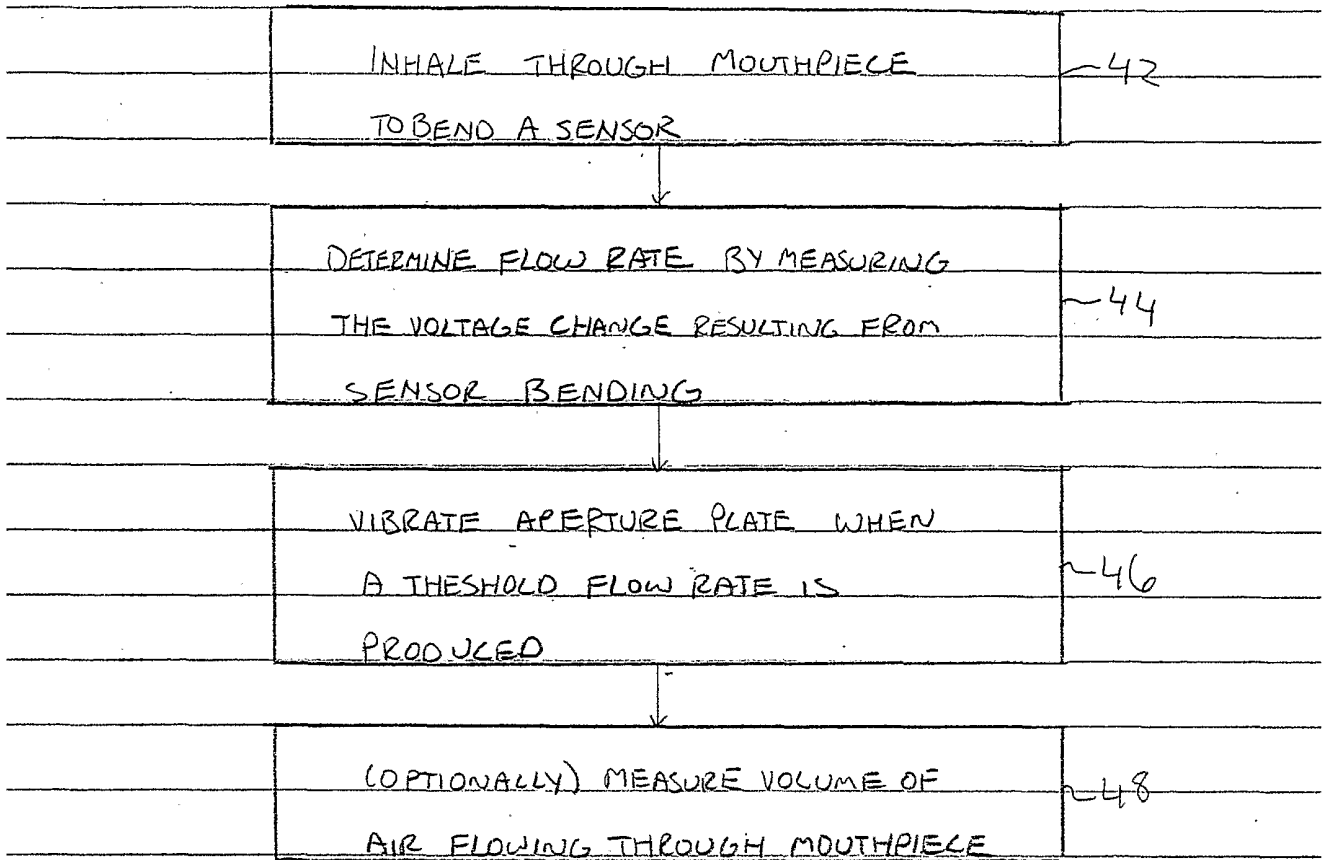 INHALE THROUGH MOUTHPIECE ~42
TO BEND A SENSOR
DETERMINE FLOW RATE BY MEASURING
THE VOLTAGE CHANGE RESULTING FROM ~44
SENSOR BENDING
VIBRATE APERTURE PLATE WHEN
A THESHOLD FLOW RATE IS ~46
PRODUCED
(OPTIONALLY) MEASURE VOLUME OF ~48
AIR FLOWING THROUGH MOUTHPIECE